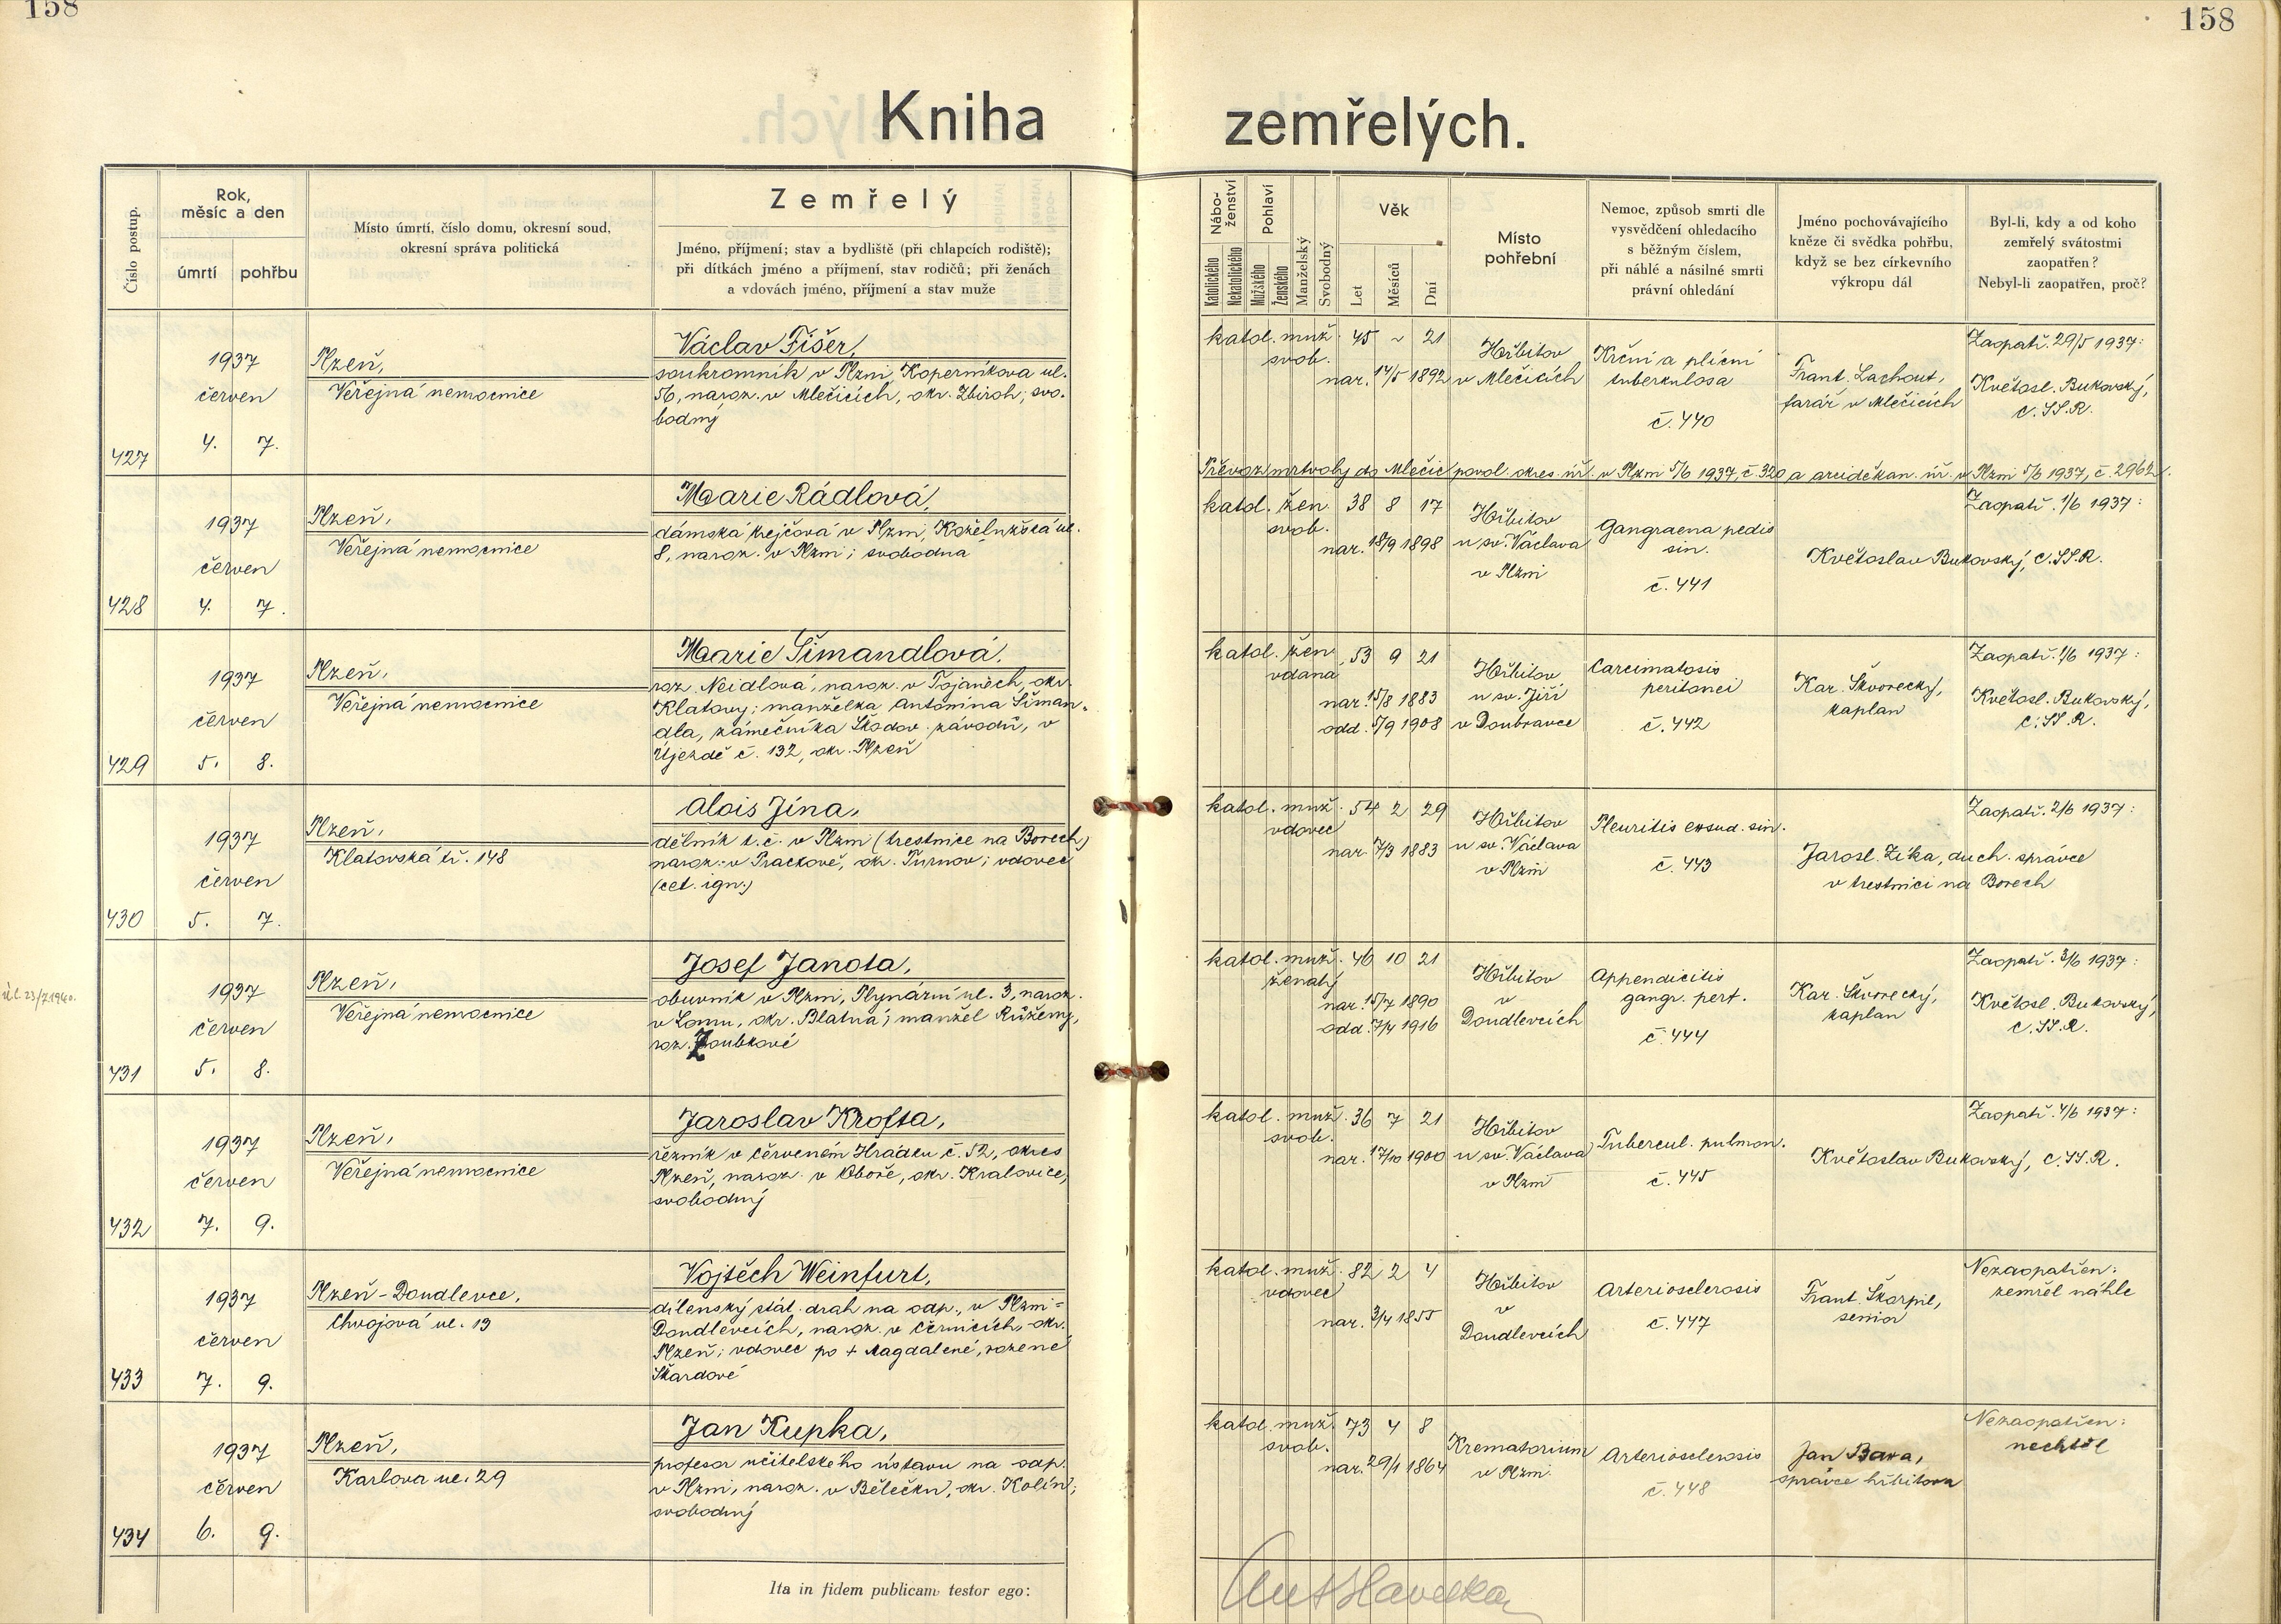 158
158
Kniha zemřelých.
Číslo postup.
Rok,
měsíc a den
úmrtí
pohřbu
Místo úmrtí, číslo domu, okresní soud,
okresní správa politická
Zemřelý
Jméno, příjmení; stav a bydliště (při chlapcích rodiště);
při dítkách jméno a příjmení, stav rodičů; při ženách
a vdovách jméno, příjmení a stav muže
Nábo-
ženství
Katolického
Nekatolického
Pohlaví
Mužského
Ženského
Manželský
Svobodný
Věk
Let
Měsíců
Dní
Místo
pohřební
Nemoc, způsob smrti dle
vysvědčení ohledacího
s běžným číslem,
při náhlé a násilné smrti
právní ohledání
Jméno pochovávajícího
kněze či svědka pohřbu,
když se bez církevního
výkropu dál
Byl-li, kdy a od koho
zemřelý svátostmi
zaopatřen?
Nebyl-li zaopatřen, proč?
427
1937
červen
4. 7.
Plzeň,
Veřejná nemocnice
Václav Fišer,
soukromník v Plzni, Koperníkova ul.
56, naroz. v Mlečicích, okr. Zbiroh; svo-
bodný
katol. muž. 45 ~ 21
svob.
nar. 14/5 1892
Hřbitov
v Mlečicích
Krční a plicní
tuberkulosa
č. 440
Frant. Lachout,
farář v Mlečicích
Zaopatř. 29/5 1937:
Květosl. Bukovský,
C.SS.R.
Převoz mrtvoly do Mlečic povol. okres. úř. v Plzni 5/6 1937, č. 320 a arciděkan. úř. v Plzni 5/6 1937, č. 2962.
428
1937
červen
4. 7.
Plzeň,
Veřejná nemocnice
Marie Rádlová,
dámská krejčová v Plzni, Koželužská ul.
8, naroz. v Plzni; svobodná
katol. žen. 38 8 17
svob.
nar. 18/9 1898
Hřbitov
u sv. Václava
v Plzni
Gangraena pedis
sin.
č. 441
Květoslav Bukovský, C.SS.R.
Zaopatř. 1/6 1937:
429
1937
červen
5. 8.
Plzeň,
Veřejná nemocnice
Marie Šimandlová,
roz. Neidlová, naroz. v Tojanech, okr.
Klatovy; manželka Antonína Šiman-
dla, zámečníka Škodov. závodů, v
Újezdě č. 132, okr. Plzeň
katol. žen. 53 9 21
vdaná
nar. 15/8 1883
odd. 5/9 1908
Hřbitov
u sv. Jiří
v Doubravce
Carcimatosis
peritonei
č. 442
Kar. Škvorecký,
kaplan
Zaopatř. 1/6 1937:
Květosl. Bukovský,
C.SS.R.
430
1937
červen
5. 7.
Plzeň,
Klatovská tř. 148
Alois Jína,
dělník t.č. v Plzni (trestnice na Borech)
naroz. v Prackově, okr. Turnov; vdovec
(cet. ign.)
katol. muž. 54 2 29
vdovec
nar. 7/3 1883
Hřbitov
u sv. Václava
v Plzni
Pleuritis exsud. sin.
č. 443
Jarosl. Zíka, duch. správce
v trestnici na Borech
Zaopatř. 2/6 1937:
431
1937
červen
5. 8.
Plzeň,
Veřejná nemocnice
Josef Janota,
obuvník v Plzni, Plynární ul. 3, naroz.
v Lomu, okr. Blatná; manžel Růženy,
roz. Zoubkové
katol. muž. 46 10 21
ženatý
nar. 15/7 1890
odd. 7/4 1916
Hřbitov
v
Doudlevcích
Appendicitis
gangr. perf.
č. 444
Kar. Škvorecký,
kaplan
Zaopatř. 3/6 1937:
Květosl. Bukovský,
C.SS.R.
432
1937
červen
7. 9.
Plzeň,
Veřejná nemocnice
Jaroslav Krofta,
řezník v Červeném Hrádku č. 52, okres
Plzeň, naroz. v Oboře, okr. Kralovice,
svobodný
katol. muž. 36 7 21
svob.
nar. 17/10 1900
Hřbitov
u sv. Václava
v Plzni
Tubercul. pulmon.
č. 445
Květoslav Bukovský, C.SS.R.
Zaopatř. 4/6 1937:
433
1937
červen
7. 9.
Plzeň-Doudlevce,
Chvojová ul. 13
Vojtěch Weinfurt,
dílenský stát. drah na odp., v Plzni-
Doudlevcích, naroz. v Černicích, okr.
Plzeň; vdovec po + Magdaleně, rozené
Škardové
katol. muž. 82 2 4
vdovec
nar. 3/4 1855
Hřbitov
v
Doudlevcích
Arteriosclerosis
č. 447
Frant. Škarpil,
senior
Nezaopatřen:
zemřel náhle
434
1937
červen
6. 9.
Plzeň,
Karlova ul. 29
Jan Kupka,
profesor učitelského ústavu na odp.
v Plzni, naroz. v Bělečku, okr. Kolín;
svobodný
katol. muž. 73 4 8
svob.
nar. 29/1 1864
Krematorium
v Plzni
Arteriosclerosis
č. 448
Jan Bara,
správce hřbitova
Nezaopatřen:
nechtěl
Ita in fidem publicam testor ego: